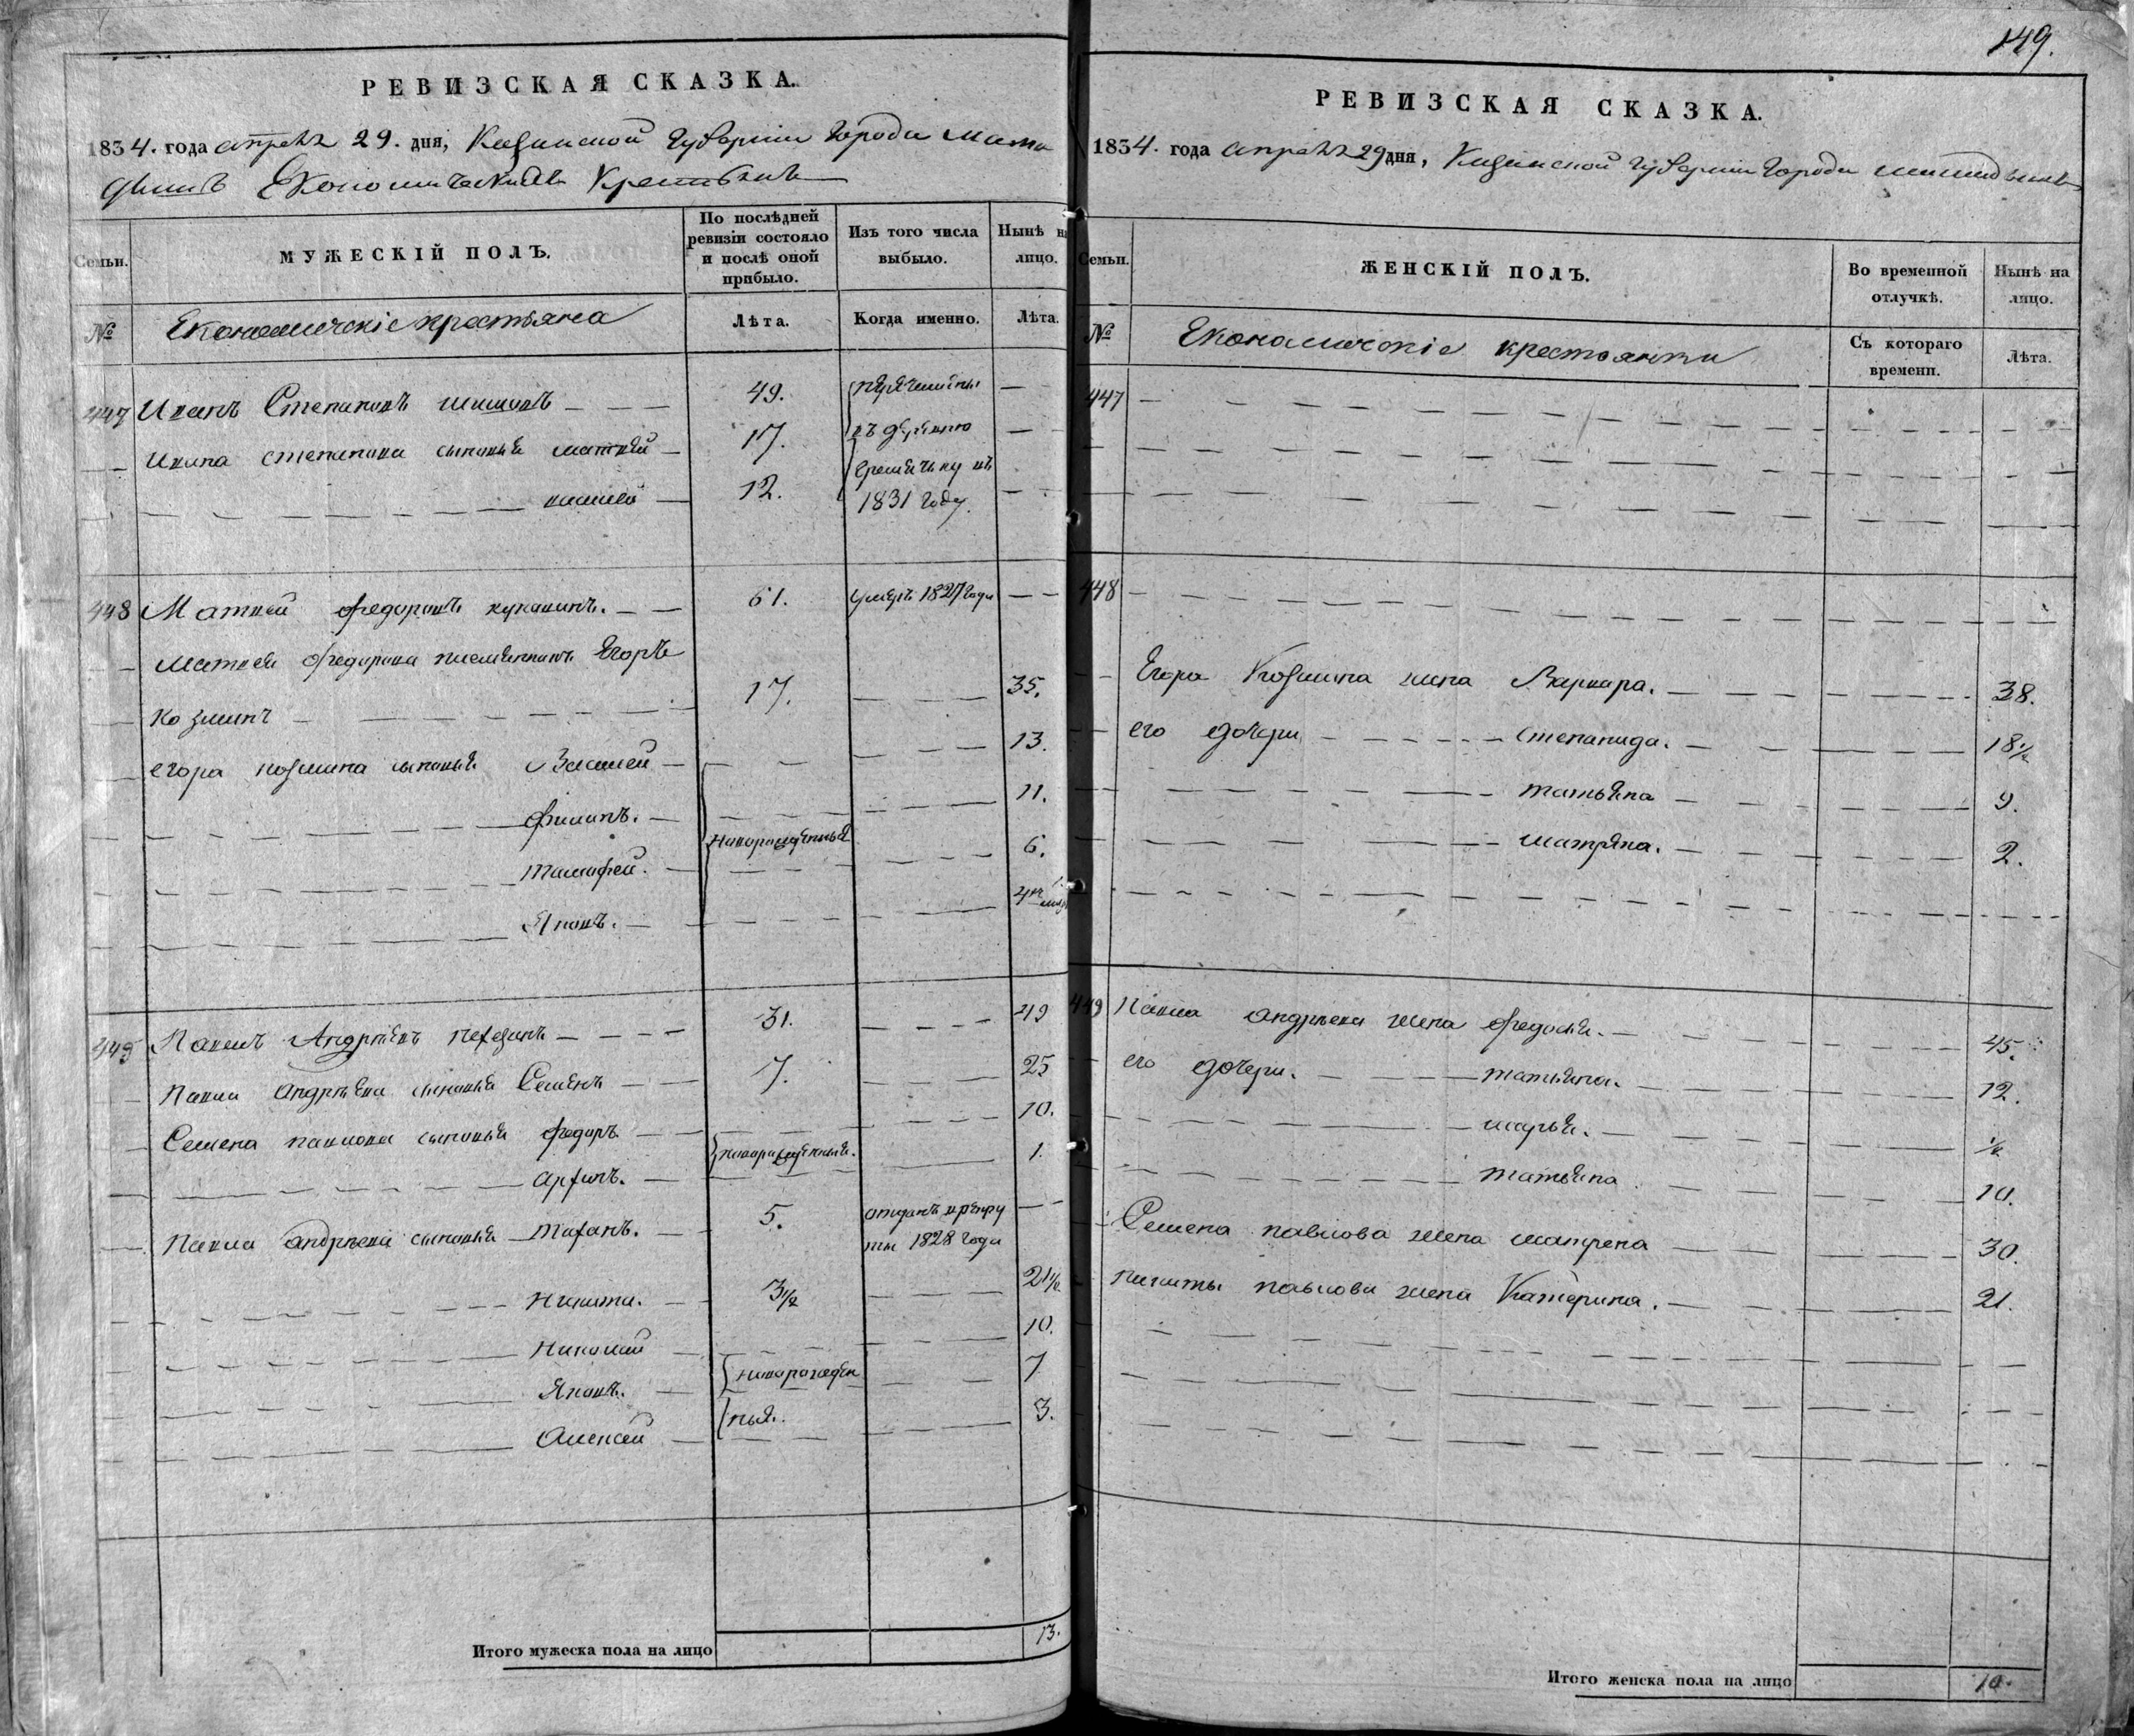 РЕВИЗСКАЯ СКАЗКА.
1834. года апреля 29. дня, Казанской Губернии Города Мама
дышъ Економическихъ Крестьянъ
Семьи.
МУЖЕСКІЙ ПОЛЪ.
По послѣдней ревизіи состояло и послѣ оной прибыло.
Изъ того числа выбыло.
Нынѣ на лицо.
№
Економическіе крестьяна
Лѣта.
Когда именно.
Лѣта.
447 Иванъ Степановъ 49. —
Ивана степанова сыновья матвей 17. —
12. —
въ деревню
1831 году.
448 Матвей федоровъ 61. умеръ 1827 года —
матвея федорова племянникъ Егоръ
Козминъ 17. — 35.
егора козмина сыновья Василей — 13.
филипъ. — 11.
новорожденныя
тимофей. — 6.
Яковъ. —
449 Павелъ Андреевъ 31. — 49
Павла андреева сыновья Семенъ 7. — 25
Семена павлова сыновья федоръ — 10.
новорожденныя.
— 1.
Павла андреева сыновья 5. отданъ в рекру
ты 1828 года —
Никита. 3½ — 21½
Николай — 10.
новорожден
Яковъ. — 7
ныя.
Алексей — 3.
Итого мужеска пола на лицо 13.
149.
РЕВИЗСКАЯ СКАЗКА.
1834. года апреля 29 дня, Казанской губернии Города мамадышъ
Семьи.
ЖЕНСКІЙ ПОЛЪ.
Во временной отлучкѣ.
Нынѣ на лицо.
№
Економическіе крестьянки
Съ котораго времени.
Лѣта.
447 —
448 —
Егора Козмина жена Варвара. — 38.
его дочери — степанида. — 18½
татьяна — 9.
матрена. — 2.
449 Павла андреева жена федосья. — 45.
его дочери. — татьяна. — 12.
марья. — ½
татьяна — 10.
Семена павлова жена матрена — 30.
никиты павлова жена Катерина. — 21.
Итого женска пола на лицо 10.